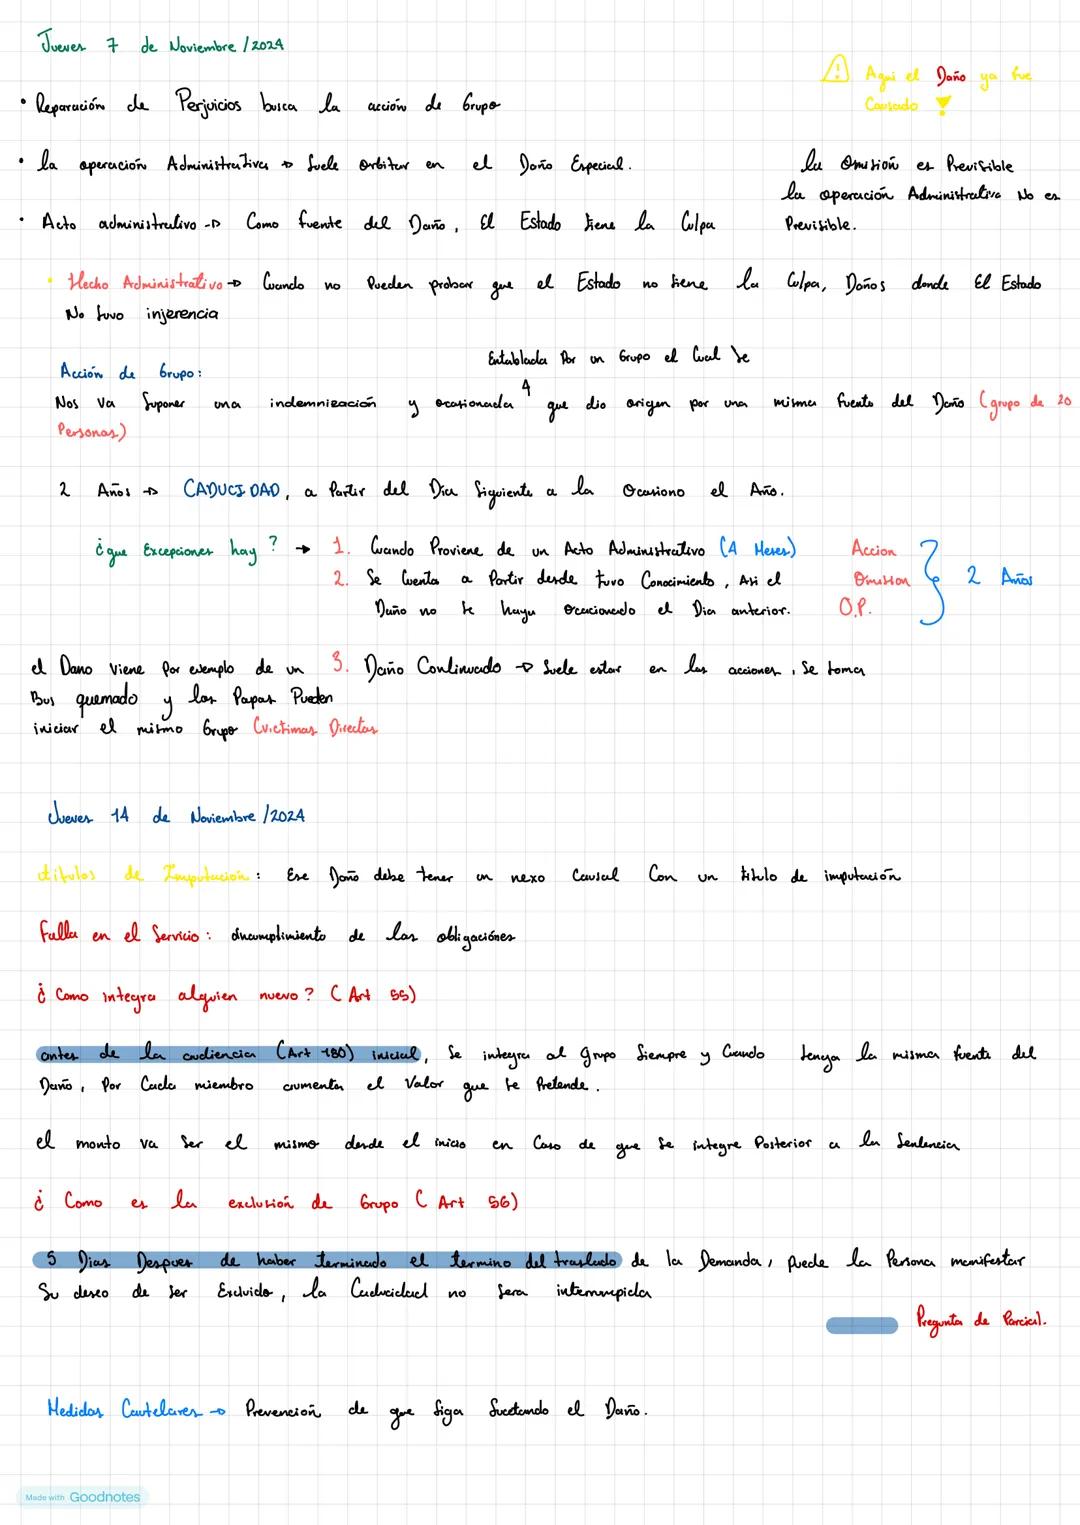 Jueves 7 de Noviembre / 2024
Aqui el Daño ya fue
Causado
• Reparación de Perjuicios busca la acción de Grupo
• la operación Administrativa → Suele orbitar en el Daño Especial.
la Omisión es Previsible
la operación Administrativa No es
Previsible.
• Acto administrativo → Como fuente del Daño, El Estado tiene la Culpa
• Hecho Administrativo → Cuando no Pueden probar que el Estado no tiene la Culpa, Daños donde El Estado
No tuvo injerencia
Entablada Por un Grupo el Cual Se
Acción de Grupo:
Nos va Suponer una indemnización y ocasionada que dio origen por una misma fuente del Daño (grupo de 20
Personas)
2 Años → CADUCIDAD, a Partir del Dia Siguiente a la Ocasiono el Año.
¿que Excepciones hay? → 1. Cuando Proviene de un Acto Administrativo (4 Meses)
2. Se Cuenta a Partir desde tuvo Conocimiento, Asi el
Daño no se haya Ocacionado el Dia anterior.
Accion
Omision
O.P.
2 Años
3. Daño Continuado → Suele estar en las acciones, Se toma
el Dano Viene Por ejemplo de un
Bus quemado y los Papas Pueden
iniciar el mismo Grupo (victimas Directas
Jueves 14 de Noviembre /2024
titulos de Imputación: Ese Daño debe tener un nexo Causal Con un titulo de imputación
Falla en el Servicio: incumplimiento de las obligaciónes
¿Como integra alguien nuevo? (Art 55)
antes de la audiencia (Art 180) inicial, Se integra al grupo Siempre y Cuando tenga la misma fuente del
Daño, Por Cada miembro aumenta el Valor que se Pretende.
el monto va Ser el mismo desde el inicio en Caso de que Se integre Posterior a la Sentencia
¿Como es la exclusión de Grupo (Art 56)
5 Dias Despues de haber terminado el termino del traslado de la Demanda, puede la Persona manifestar
Su deseo de Ser Excluido, la Caducidad no Sera interrumpida
Pregunta de Parcial.
Medidas Cautelares → Prevención de que Siga Sucetando el Daño.
Made with Goodnotes